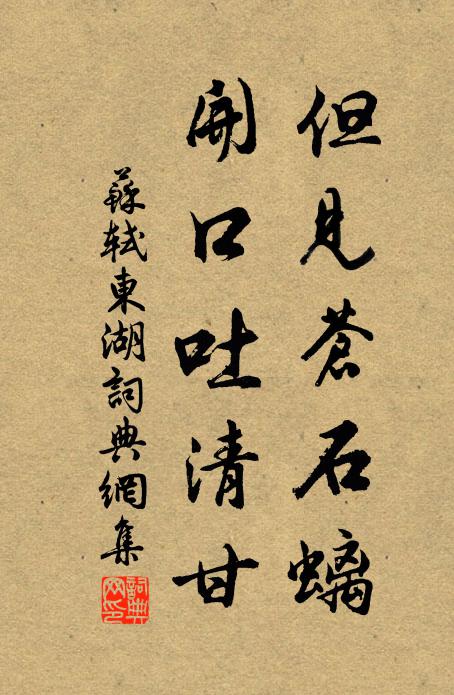 但見蒼石螭
開口吐清甘
蘇軾東湖詞典網集
詞典网印